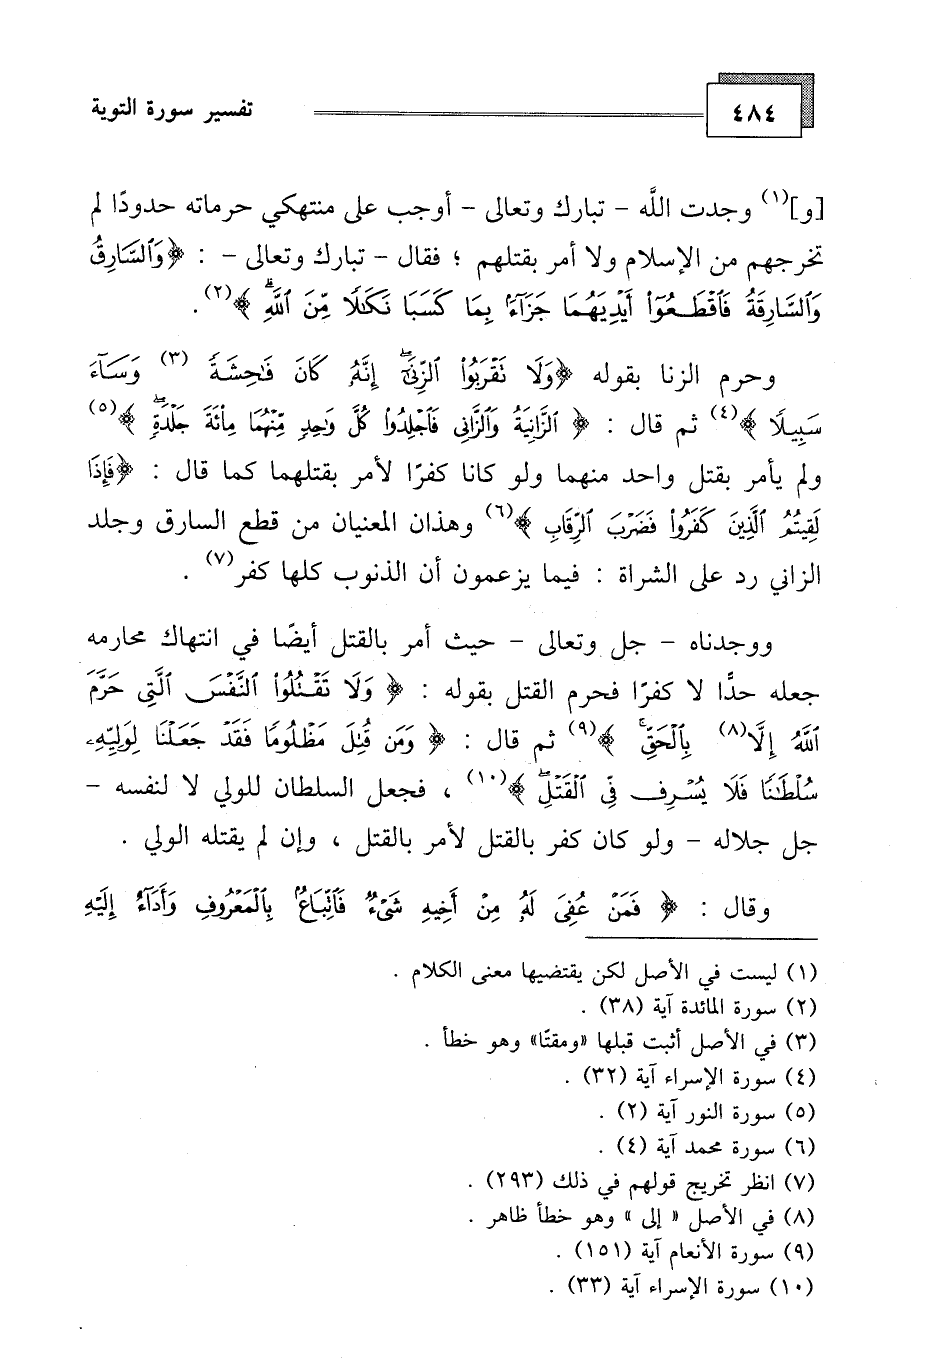 ٤٨٤
تفسير سورة التوبة
[و](١) وجدت الله - تبارك وتعالى - أوجب على منتهكي حرماته حدودًا لم
تخرجهم من الإسلام ولا أمر بقتلهم ؛ فقال - تبارك وتعالى - : ﴿وَٱلسَّارِقُ
وَٱلسَّارِقَةُ فَٱقْطَعُوٓا۟ أَيْدِيَهُمَا جَزَآءًۢ بِمَا كَسَبَا نَكَـٰلًا مِّنَ ٱللَّهِۗ ﴾(٢) .
وحرم الزنا بقوله ﴿وَلَا تَقْرَبُوا۟ ٱلزِّنَىٰٓۖ إِنَّهُۥ كَانَ فَـٰحِشَةً (٣) وَسَآءَ
سَبِيلًا ﴾(٤) ثم قال : ﴿ ٱلزَّانِيَةُ وَٱلزَّانِى فَٱجْلِدُوا۟ كُلَّ وَٰحِدٍ مِّنْهُمَا مِا۟ئَةَ جَلْدَةٍۖ ﴾(٥)
ولم يأمر بقتل واحد منهما ولو كانا كفرًا لأمر بقتلهما كما قال : ﴿فَإِذَا
لَقِيتُمُ ٱلَّذِينَ كَفَرُوا۟ فَضَرْبَ ٱلرِّقَابِ ﴾(٦) وهذان المعنيان من قطع السارق وجلد
الزاني رد على الشراة : فيما يزعمون أن الذنوب كلها كفر(٧) .
ووجدناه - جل وتعالى - حيث أمر بالقتل أيضًا في انتهاك محارمه
جعله حدًّا لا كفرًا فحرم القتل بقوله : ﴿ وَلَا تَقْتُلُوا۟ ٱلنَّفْسَ ٱلَّتِى حَرَّمَ
ٱللَّهُ إِلَّا(٨) بِٱلْحَقِّۚ ﴾(٩) ثم قال : ﴿ وَمَن قُتِلَ مَظْلُومًا فَقَدْ جَعَلْنَا لِوَلِيِّهِۦ
سُلْطَـٰنًا فَلَا يُسْرِف فِّى ٱلْقَتْلِۖ ﴾(١٠) ، فجعل السلطان للولي لا لنفسه -
جل جلاله - ولو كان كفر بالقتل لأمر بالقتل ، وإن لم يقتله الولي .
وقال : ﴿ فَمَنْ عُفِىَ لَهُۥ مِنْ أَخِيهِ شَىْءٌ فَٱتِّبَاعٌۢ بِٱلْمَعْرُوفِ وَأَدَآءٌ إِلَيْهِ
(١) ليست في الأصل لكن يقتضيها معنى الكلام .
(٢) سورة المائدة آية (٣٨) .
(٣) في الأصل أثبت قبلها «ومقتًا» وهو خطأ .
(٤) سورة الإسراء آية (٣٢) .
(٥) سورة النور آية (٢) .
(٦) سورة محمد آية (٤) .
(٧) انظر تخريج قولهم في ذلك (٢٩٣) .
(٨) في الأصل « إلى » وهو خطأ ظاهر .
(٩) سورة الأنعام آية (١٥١) .
(١٠) سورة الإسراء آية (٣٣) .